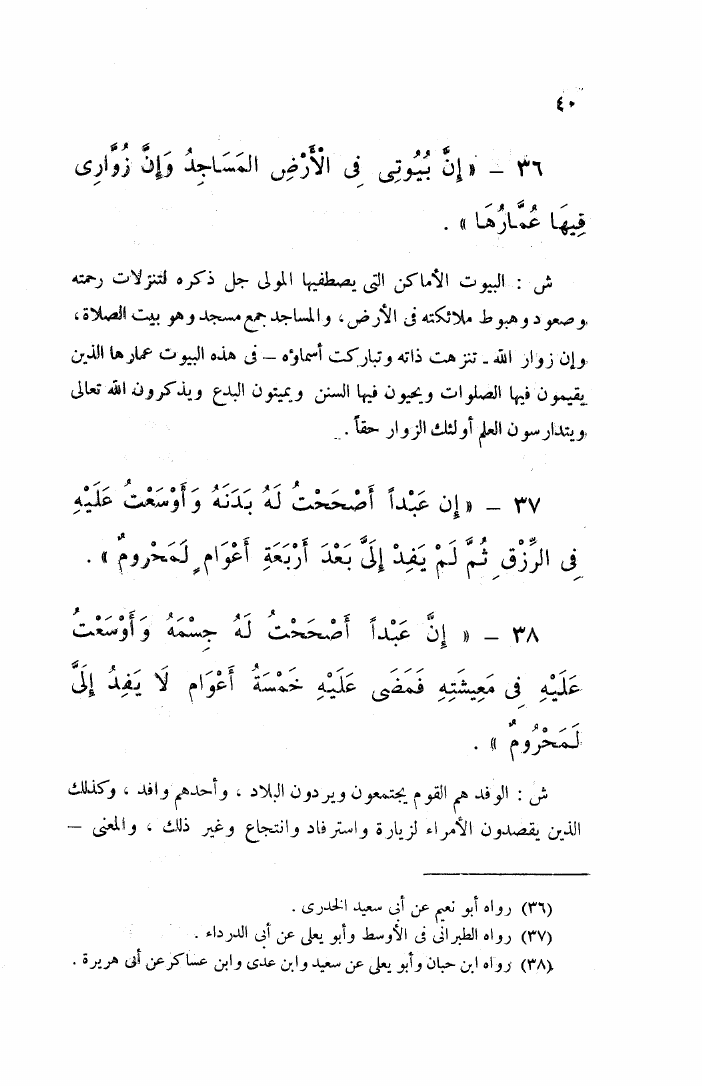 ٤٠
٣٦ – « إِنَّ بُيُوتِى فِى الْأَرْضِ المَسَاجِدُ وَإِنَّ زُوَّارِى
فِيهَا عُمَّارُهَا » .
ش : البيوت الأماكن التى يصطفيها المولى جل ذكره لتنزلات رحمته
وصعود وهبوط ملائكته فى الأرض ، والمساجد جمع مسجد وهو بيت الصلاة ،
وإن زوار الله ـ تنزهت ذاته وتباركت أسماؤه – فى هذه البيوت عمارها الذين
يقيمون فيها الصلوات ويحيون فيها السنن ويميتون البدع ويذكرون الله تعالى
ويتدارسون العلم أولئك الزوار حقاً .
٣٧ – « إِن عَبْداً أَصْحَحْتُ لَهُ بَدَنَهُ وَأَوْسَعْتُ عَلَيْهِ
فِى الرِّزْقِ ثُمَّ لَمْ يَفِدْ إِلَىَّ بَعْدَ أَرْبَعَةِ أَعْوَامٍ لَمَحْرُومٌ » .
٣٨ – « إِنَّ عَبْداً أَصْحَحْتُ لَهُ جِسْمَهُ وَأَوْسَعْتُ
عَلَيْهِ فِى مَعِيشَتِهِ فَمَضَى عَلَيْهِ خَمْسَةُ أَعْوَامٍ لَا يَفِدُ إِلَىَّ
لَمَحْرُومٌ » .
ش : الوفد هم القوم يجتمعون ويردون البلاد ، وأحدهم وافد ، وكذلك
الذين يقصدون الأمراء لزيارة واسترفاد وانتجاع وغير ذلك ، والمعنى –
(٣٦) رواه أبو نعيم عن أبى سعيد الخدرى .
(٣٧) رواه الطبرانى فى الأوسط وأبو يعلى عن أبى الدرداء .
(٣٨) رواه ابن حبان وأبو يعلى عن سعيد وابن عدى وابن عساكر عن أبى هريرة .